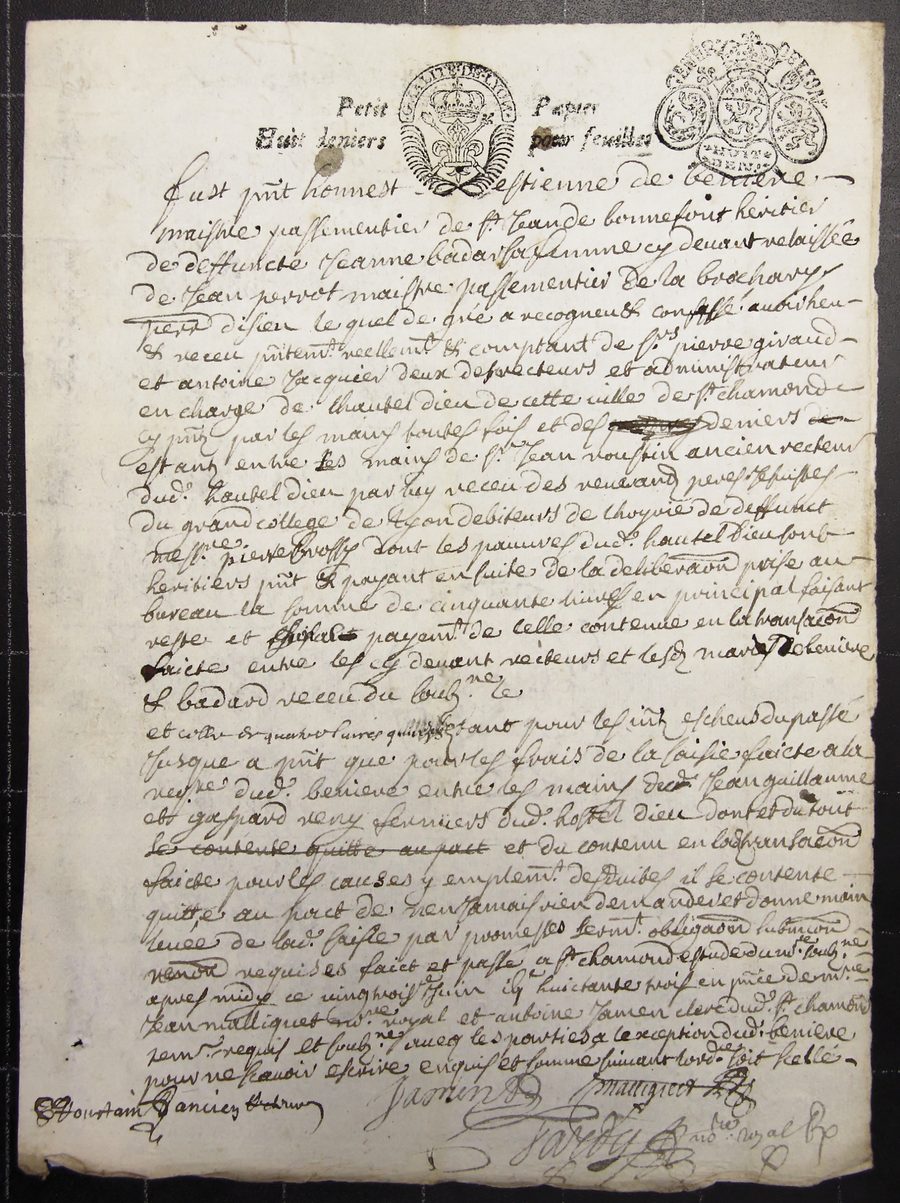 GNALITE DE LYON
Petit Papier
Huit deniers pour feuilles
HUIT DEN.
fust pnt honnest estienne de beniere
maistre passementier de St Jean de bonnefont heritier
de deffuncte Jeanne badar sa femme cy devant relaissée
de Jean perrot maistre passementier de la
disieu lequel de gré a recogneu & confessé avoir heu
& receu pntemt reellemt & comptant de Srs pierre giraud
et antoine Jacquier deux des recteurs et administrateurs
en charge de lhautel dieu de cette ville de St chamond
cy pnt par les mains toutes fois et des deniers de
estant entre les mains de Sr Jean ancien recteur
dud. hautel dieu par luy receu des reverands peres Jesuistes
du grand college de Lyon debiteurs de lhoyrie de deffunct
messre pierre brossy dont les pauvres dud. hautel dieu sont
heritiers pnt & payant en suite de la deliberaon prise au
bureau la somme de cinquante livres en principal faisant
reste et payemt de celle contenue en la transacon
faicte entre les cy devant recteurs et lesd mariés de beniere
& badard receu du soubz.ne le
et celle de quatre livres tant pour les intz escheus du passé
Jusque a pnt que pour les frais de la saisie faicte a la
reqte dud. beniere entre les mains dud. Jean guillaume
et gaspard reny fermiers dud. hostel dieu dont et du tout
se contente quitte au pact et du contenu en lad transacon
faicte pour les causes y emplemt desduites il se contente
quitte au pact de nen Jamais rien demander et donne main
levée de lad. saisie par promesses sermt obligaon submicon
renon requises faict et passé a St chamond estude du nre soubz.ne
apres midy ce vingtrois Juin quatre huictante trois en pnce de mre
Jean malliquet royal et antoine Jamen clerc dud. St chamond
temt requis et soubznes avecq les parties a lexception dud. beniere
pour ne scavoir escrire enquis et sommé suivant lord.ce soit scellé
Jamen malliquet
ancien recteur
no.re royal